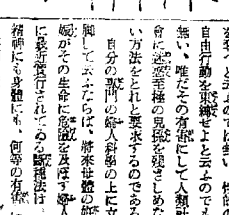 と云ふのでは無い、
自由行動を束縛せよと云ふのでも
無い、唯だその有害にして人類社
會に迷惑至極の兒孫を殘さしめな
い方法をとれと要求するのである
自分の專門の婦人科學の上に立
脚して云ふたらば、將來母體の姙
娠がその生命に危險を及ぼす婦人
に最近實行されてゐる斷種法は、
精神にも身體にも、何等の有害